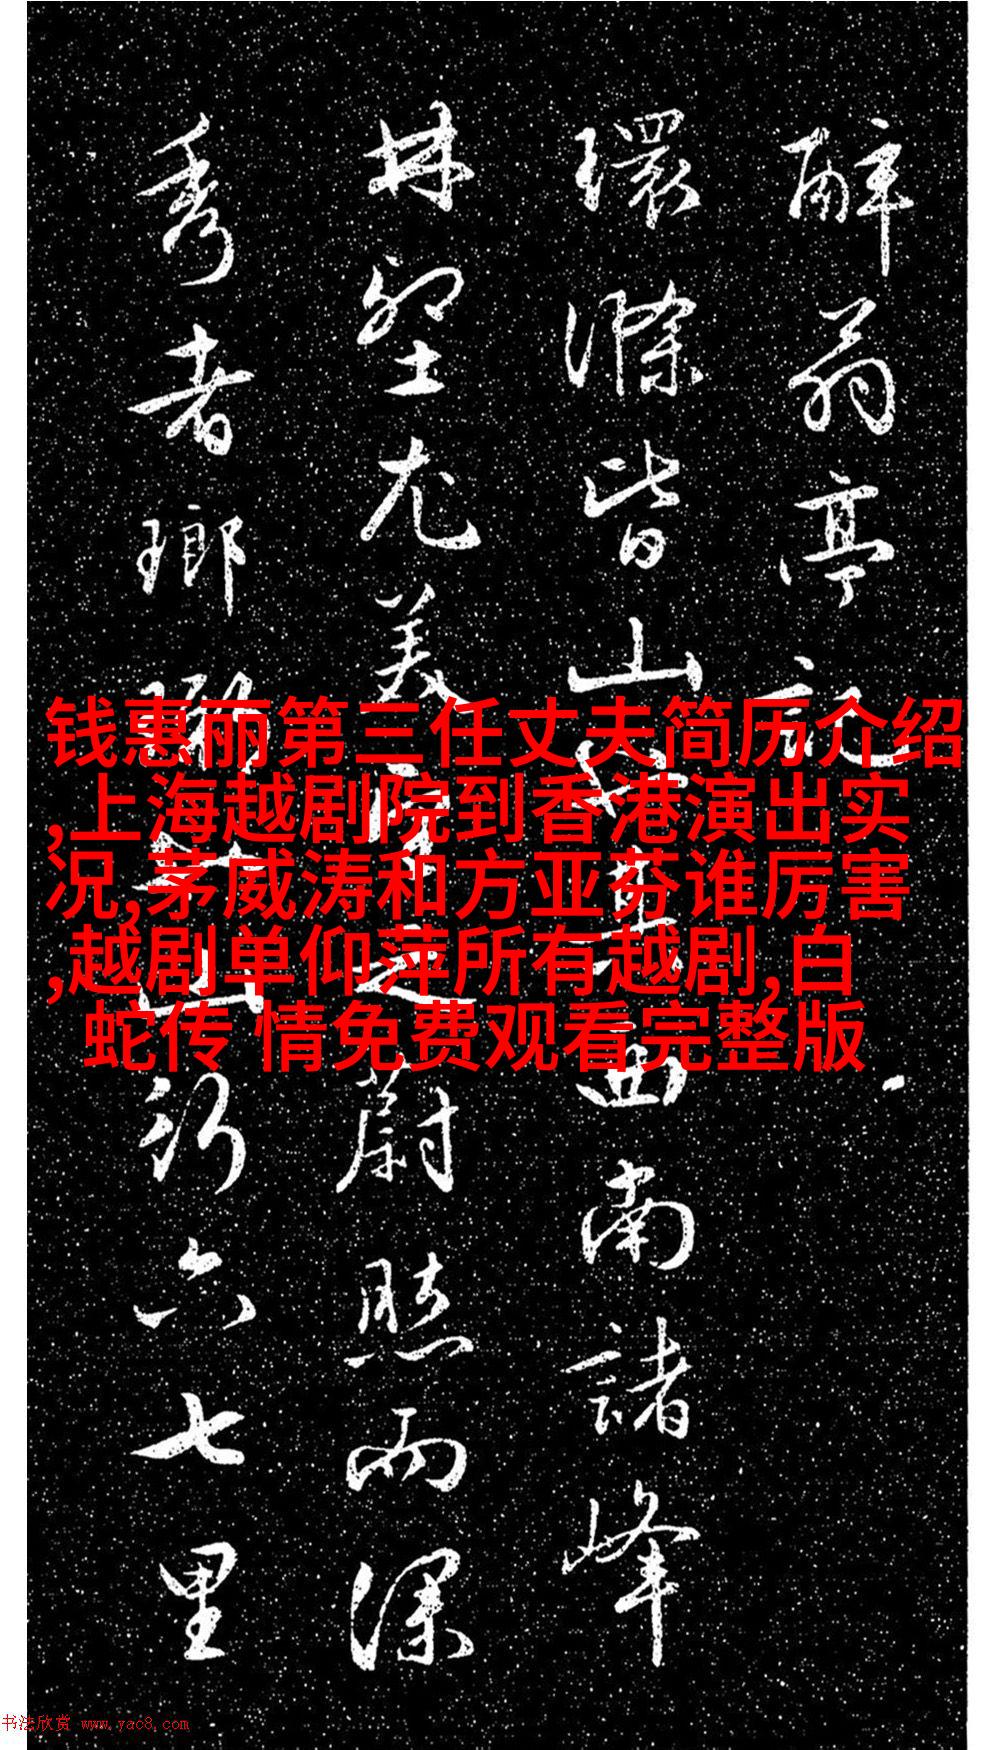 醉翁亭記
環滁皆山也其西南諸峰
林壑尤美望之蔚然而深
秀者瑯琊也山行六七里
钱惠丽第三任丈夫简历介绍
,上海越剧院到香港演出实
况,茅威涛和方亚芬谁厉害
,越剧单仰萍所有越剧,白
蛇传 情免费观看完整版
书法欣赏 www.yac8.com